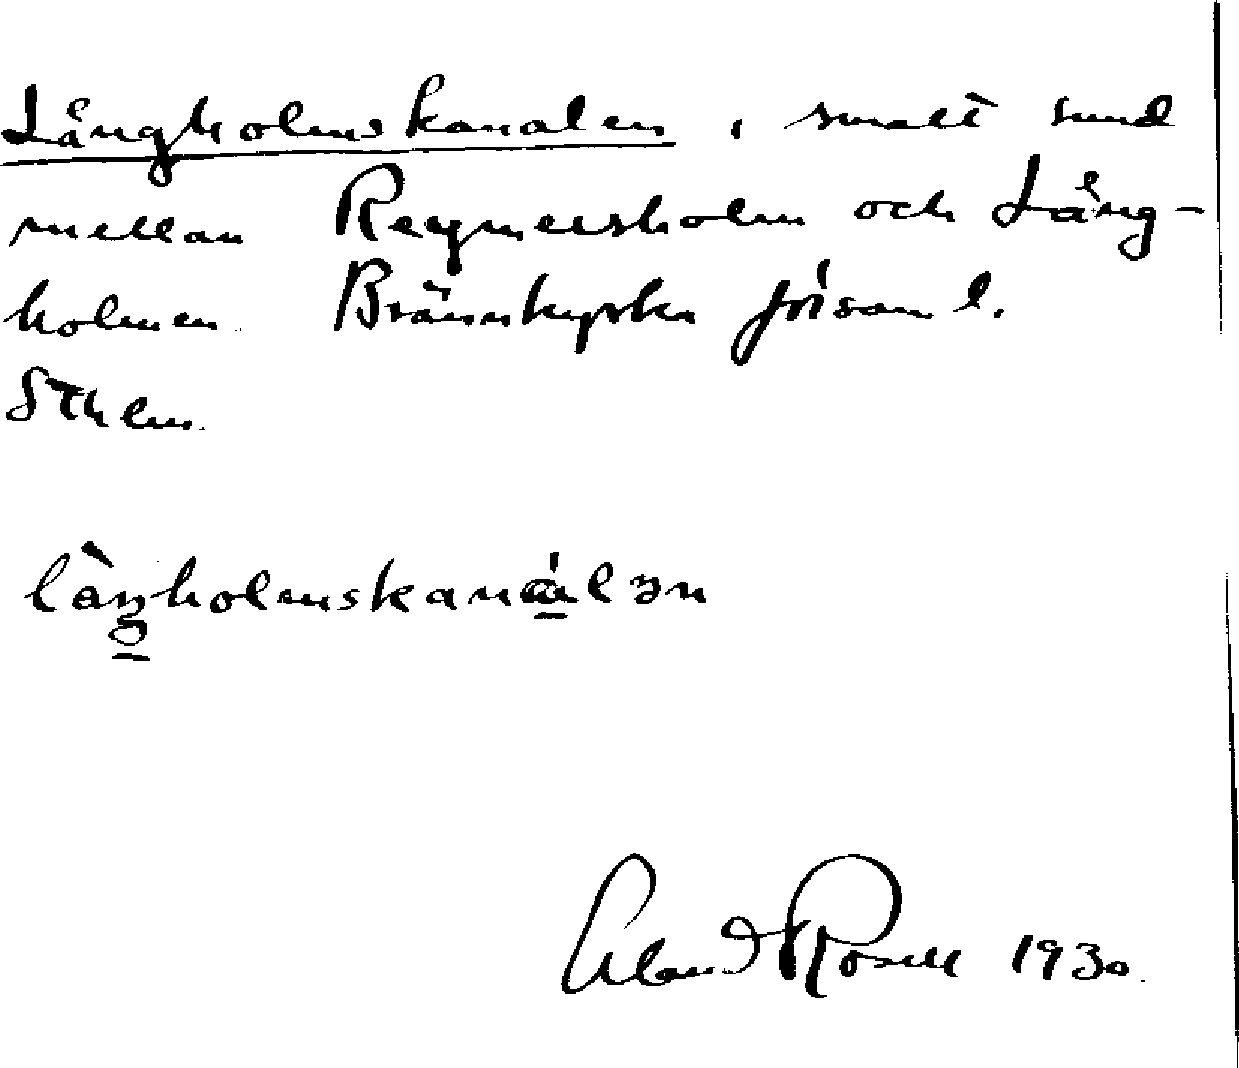 Långholmskanalen, smalt sund
mellan Reymersholm och Lång-
holmen. Brännkyrka församl.
Sthlm.
lån̠gholmskaná̠lən
Rosell 1930.